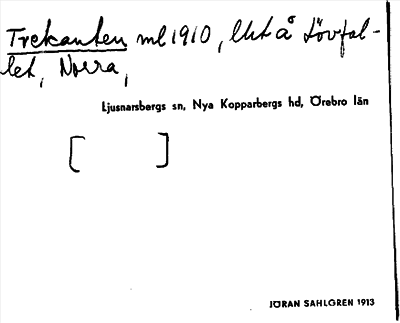 Trekanten ml 1910, litet å Lövfal-
let, Norra,
Ljusnarsbergs sn, Nya Kopparbergs hd, Örebro län
[ ]
JÖRAN SAHLGREN 1913